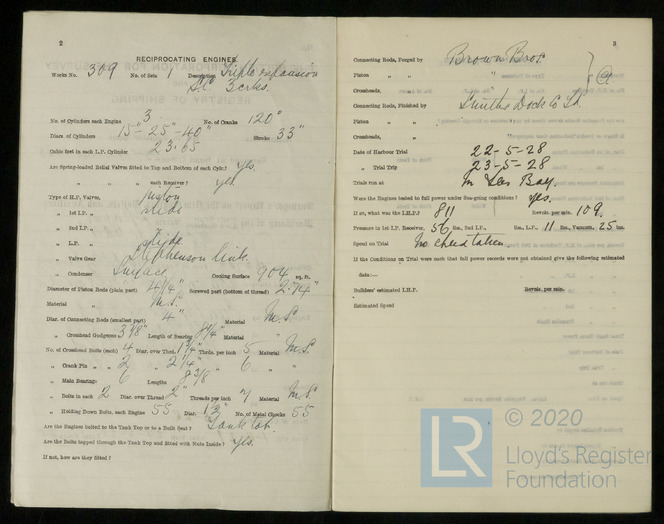 2
RECIPROCATING ENGINES.
Works No. 309 No. of Sets 1 Description Triple expansion
No. of Cylinders each Engine 3 No. of Cranks 120°
Diars. of Cylinders 15"-25"-40" Stroke 33"
Cubic feet in each L.P. Cylinder 23.65
Are Spring-loaded Relief Valves fitted to Top and Bottom of each Cylr.? Yes.
" " " each Receiver? Yes
Type of H.P. Valves, piston
" 1st I.P. " slide
" 2nd I.P. "
" L.P. " slide
" Valve Gear Stephenson link.
" Condenser Surface Cooling Surface 904 sq. ft.
Diameter of Piston Rods (plain part) 4 1/4" Screwed part (bottom of thread)
Material M.S.
Diar. of Connecting Rods (smallest part) 4" Material M.S.
" Crosshead Gudgeons 3 7/8" Length of Bearing Material
No. of Crosshead Bolts (each) 4 Diar. over Thrd. 1 3/4" Thrds. per inch 5 Material M.S.
" Crank Pin " 2 " 2 1/4" " 6 " "
" Main Bearings 6 Lengths 8 3/8"
" Bolts in each 2 Diar. over Thread 2" Threads per inch Material M.S.
" Holding Down Bolts, each Engine 55 Diar. No. of Metal Chocks 55
Are the Engines bolted to the Tank Top or to a Built Seat? Tank top.
Are the Bolts tapped through the Tank Top and fitted with Nuts Inside? Yes.
If not, how are they fitted?
3
Connecting Rods, Forged by Brown Bros.
Piston " " "
Crossheads, " "
Connecting Rods, Finished by Smiths Dock Co Ld.
Piston " " "
Crossheads, " "
Date of Harbour Trial 22-5-28
" Trial Trip 23-5-28
Trials run at In Tees Bay.
Were the Engines tested to full power under Sea-going conditions? Yes.
If so, what was the I.H.P.? 811 Revols. per min. 109.
Pressure in 1st I.P. Receiver, 56 lbs., 2nd I.P., lbs., L.P., 11 lbs., Vacuum, 25 ins.
Speed on Trial No speed taken
If the Conditions on Trial were such that full power records were not obtained give the following estimated
data:—
Builders' estimated I.H.P. Revols. per min.
Estimated Speed
LR © 2020
Lloyd's Register
Foundation